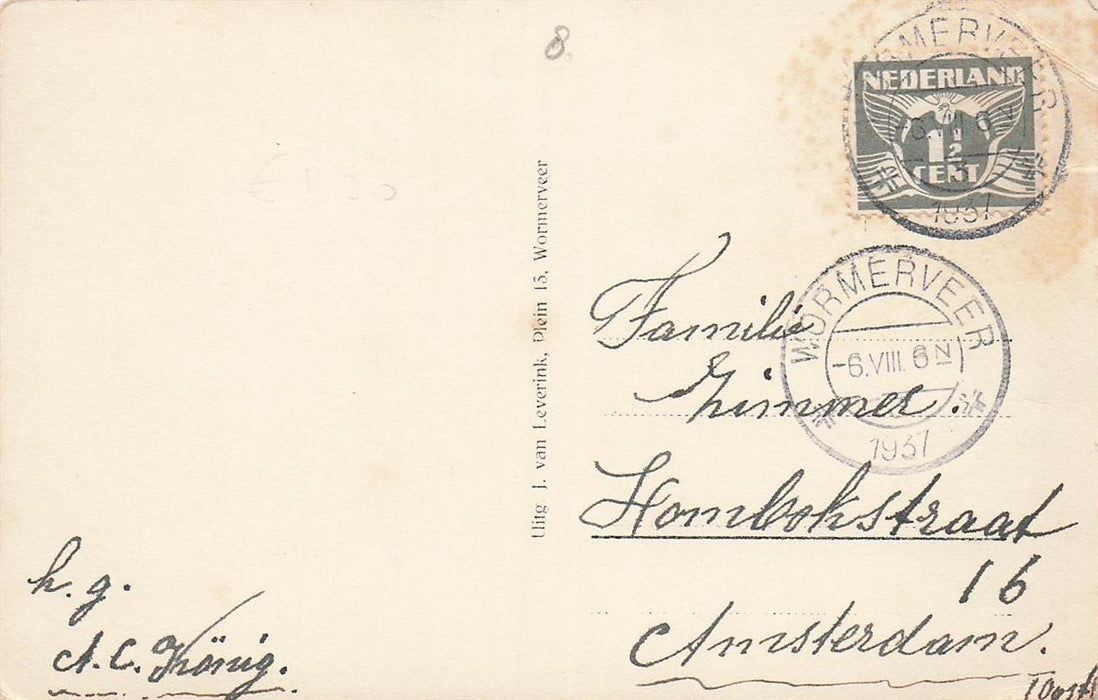 8
€ 1,50
h. g.
A. C. König.
Uitg J. van Leverink, Plein 15, Wormerveer
NEDERLAND
1½
CENT
WORMERVEER
1937
WORMERVEER
-6.VIII. 6 N
1937
Familie
Zimmer.
Lombokstraat
16
Amsterdam.
(Oost)